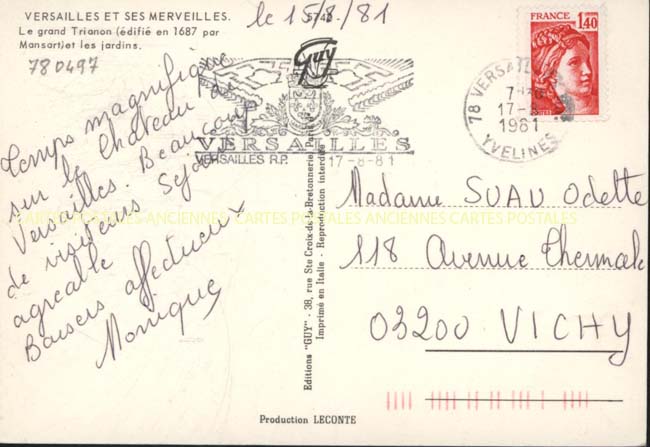 VERSAILLES ET SES MERVEILLES.
Le grand Trianon (édifié en 1687 par
Mansart) et les jardins.
780497
le 15/8/81
5740
GUY
VERSAILLES
VERSAILLES R.P. 17-8-81
FRANCE
1,40
78 VERSAILLES
17-8
1981
YVELINES
Temps magnifique
sur le Château
Versailles. Beaucoup
de visiteurs Séjour
agréable
Baisers affectueux
Monique
Editions "GUY" - 38, rue Ste Croix-de-la-Bretonnerie, Paris
Imprimé en Italie - Reproduction interdite
Madame SUAU Odette
118 Avenue Thermale
03200 VICHY
CARTES POSTALES ANCIENNES CARTES POSTALES ANCIENNES CARTES POSTALES
Production LECONTE